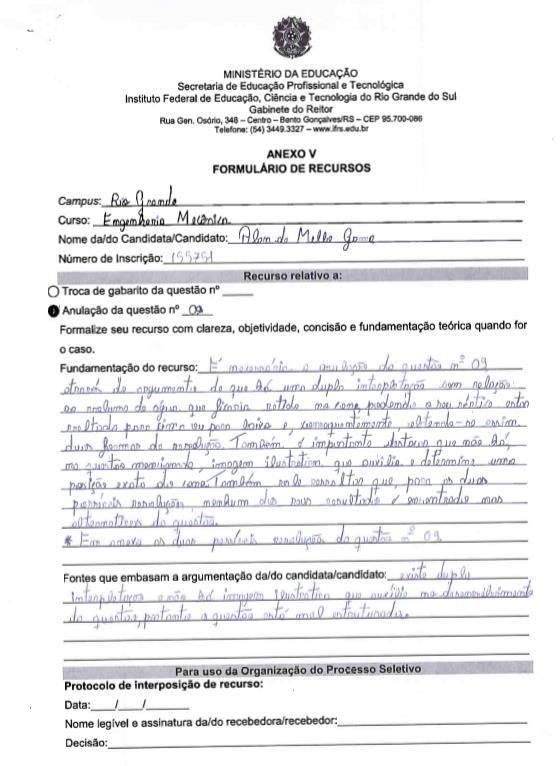 MINISTÉRIO DA EDUCAÇÃO
Secretaria de Educação Profissional e Tecnológica
Instituto Federal de Educação, Ciência e Tecnologia do Rio Grande do Sul
Gabinete do Reitor
Rua Gen. Osório, 348 – Centro – Bento Gonçalves/RS – CEP 95.700-086
Telefone: (54) 3449.3327 – www.ifrs.edu.br
ANEXO V
FORMULÁRIO DE RECURSOS
Campus: Rio Grande
Curso: Engenharia Mecânica
Nome da/do Candidata/Candidato: Alan de Mello Gome
Número de Inscrição: 155751
Recurso relativo a:
Troca de gabarito da questão nº
Anulação da questão nº 09
Formalize seu recurso com clareza, objetividade, concisão e fundamentação teórica quando for
o caso.
Fundamentação do recurso: É necessário a anulação da questão nº 09
através do argumento de que há uma dupla interpretação com relação
ao volume de água que ficaria retido no cone podendo o seu vértice estar
voltado para cima ou para baixo e, consequentemente, obtendo-se assim
duas formas de resolução. Também é importante destacar que não há,
na questão mencionada, imagem ilustrativa que auxilie e determine uma
posição exata do cone. Também vale ressaltar que, para as duas
possíveis resoluções, nenhum dos seus resultados é encontrado nas
alternativas da questão.
* Em anexo as duas possíveis resolução da questão nº 09
Fontes que embasam a argumentação da/do candidata/candidato: existe dupla
interpretação e não há imagem ilustrativa que auxilie no desenvolvimento
da questão, portanto a questão está mal estruturada.
Para uso da Organização do Processo Seletivo
Protocolo de interposição de recurso:
Data: / /
Nome legível e assinatura da/do recebedora/recebedor:
Decisão: